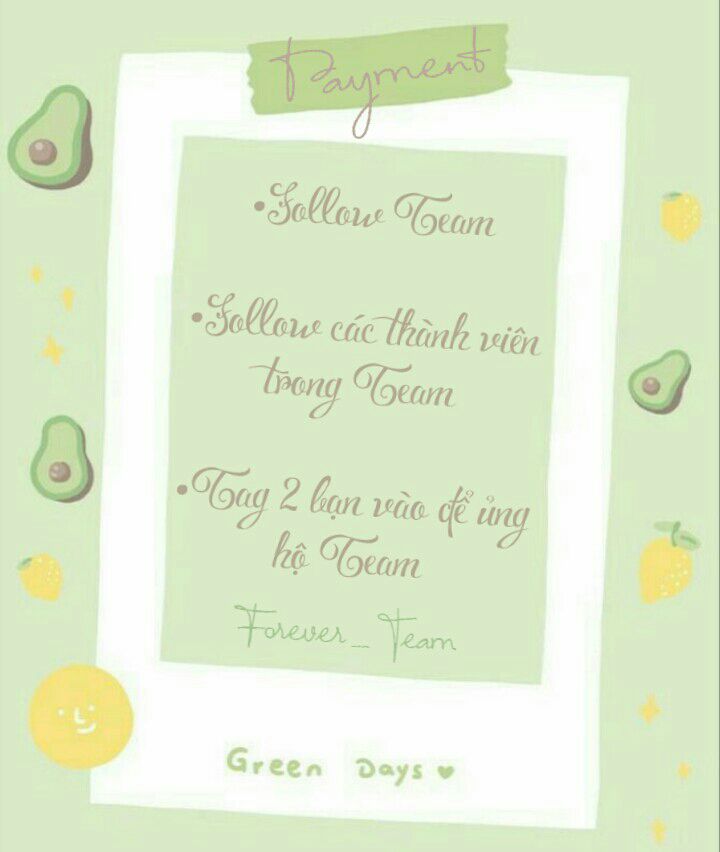 Payment
•Follow Team
•Follow các thành viên
trong Team
•Tag 2 bạn vào để ủng
hộ Team
Forever_Team
Green Days ♥